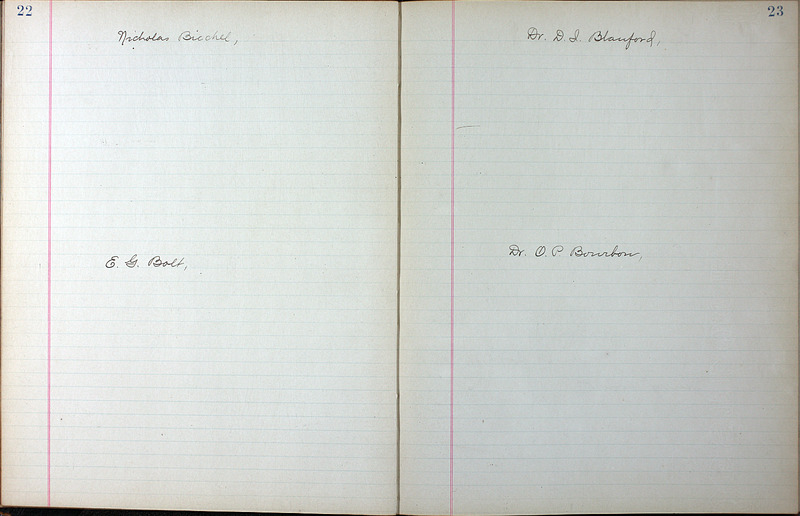 22
Nicholas Bicchel,
E. G. Bolt,
23
Dr. D. I. Blanford,
Dr. O. P Bourbon,